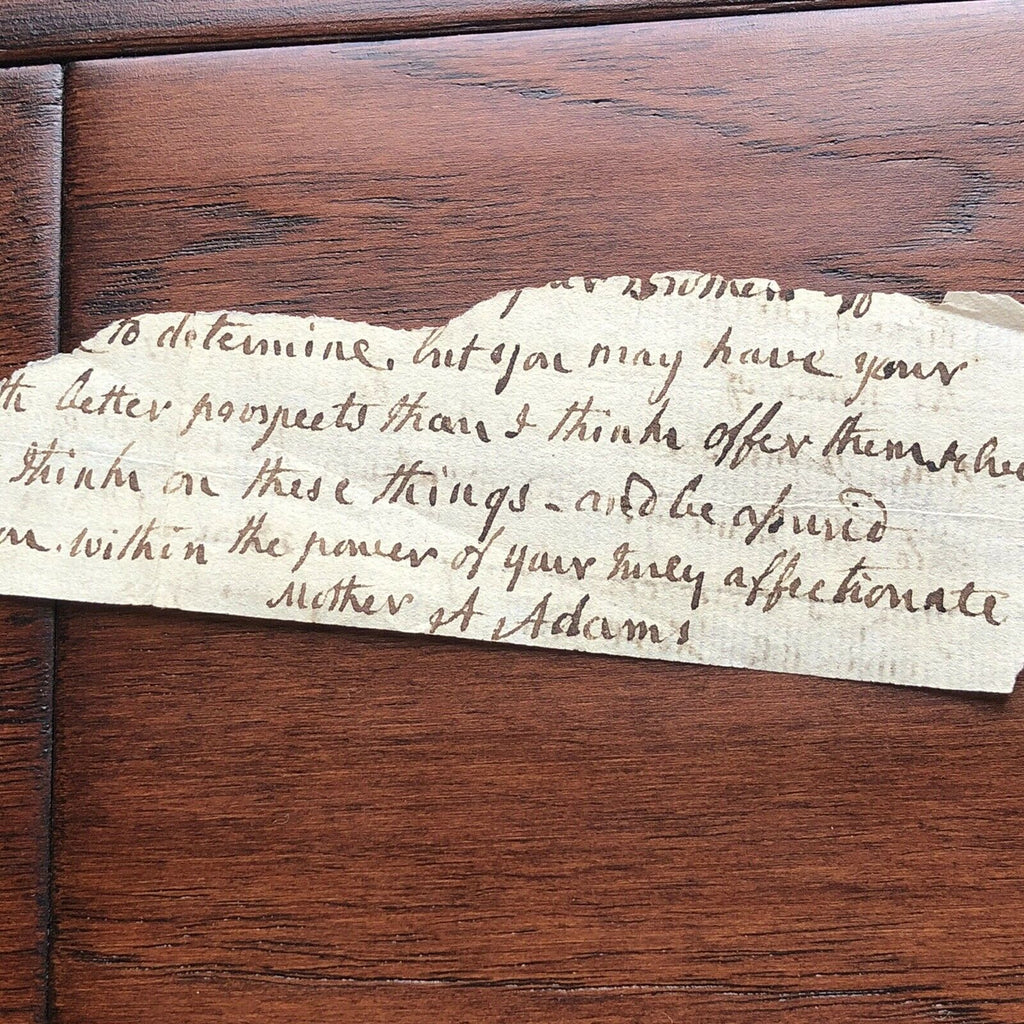 to determine. but you may have your
better prospects than I think offer themselves
think on these things - and be assured
within the power of your truly affectionate
Mother A Adams